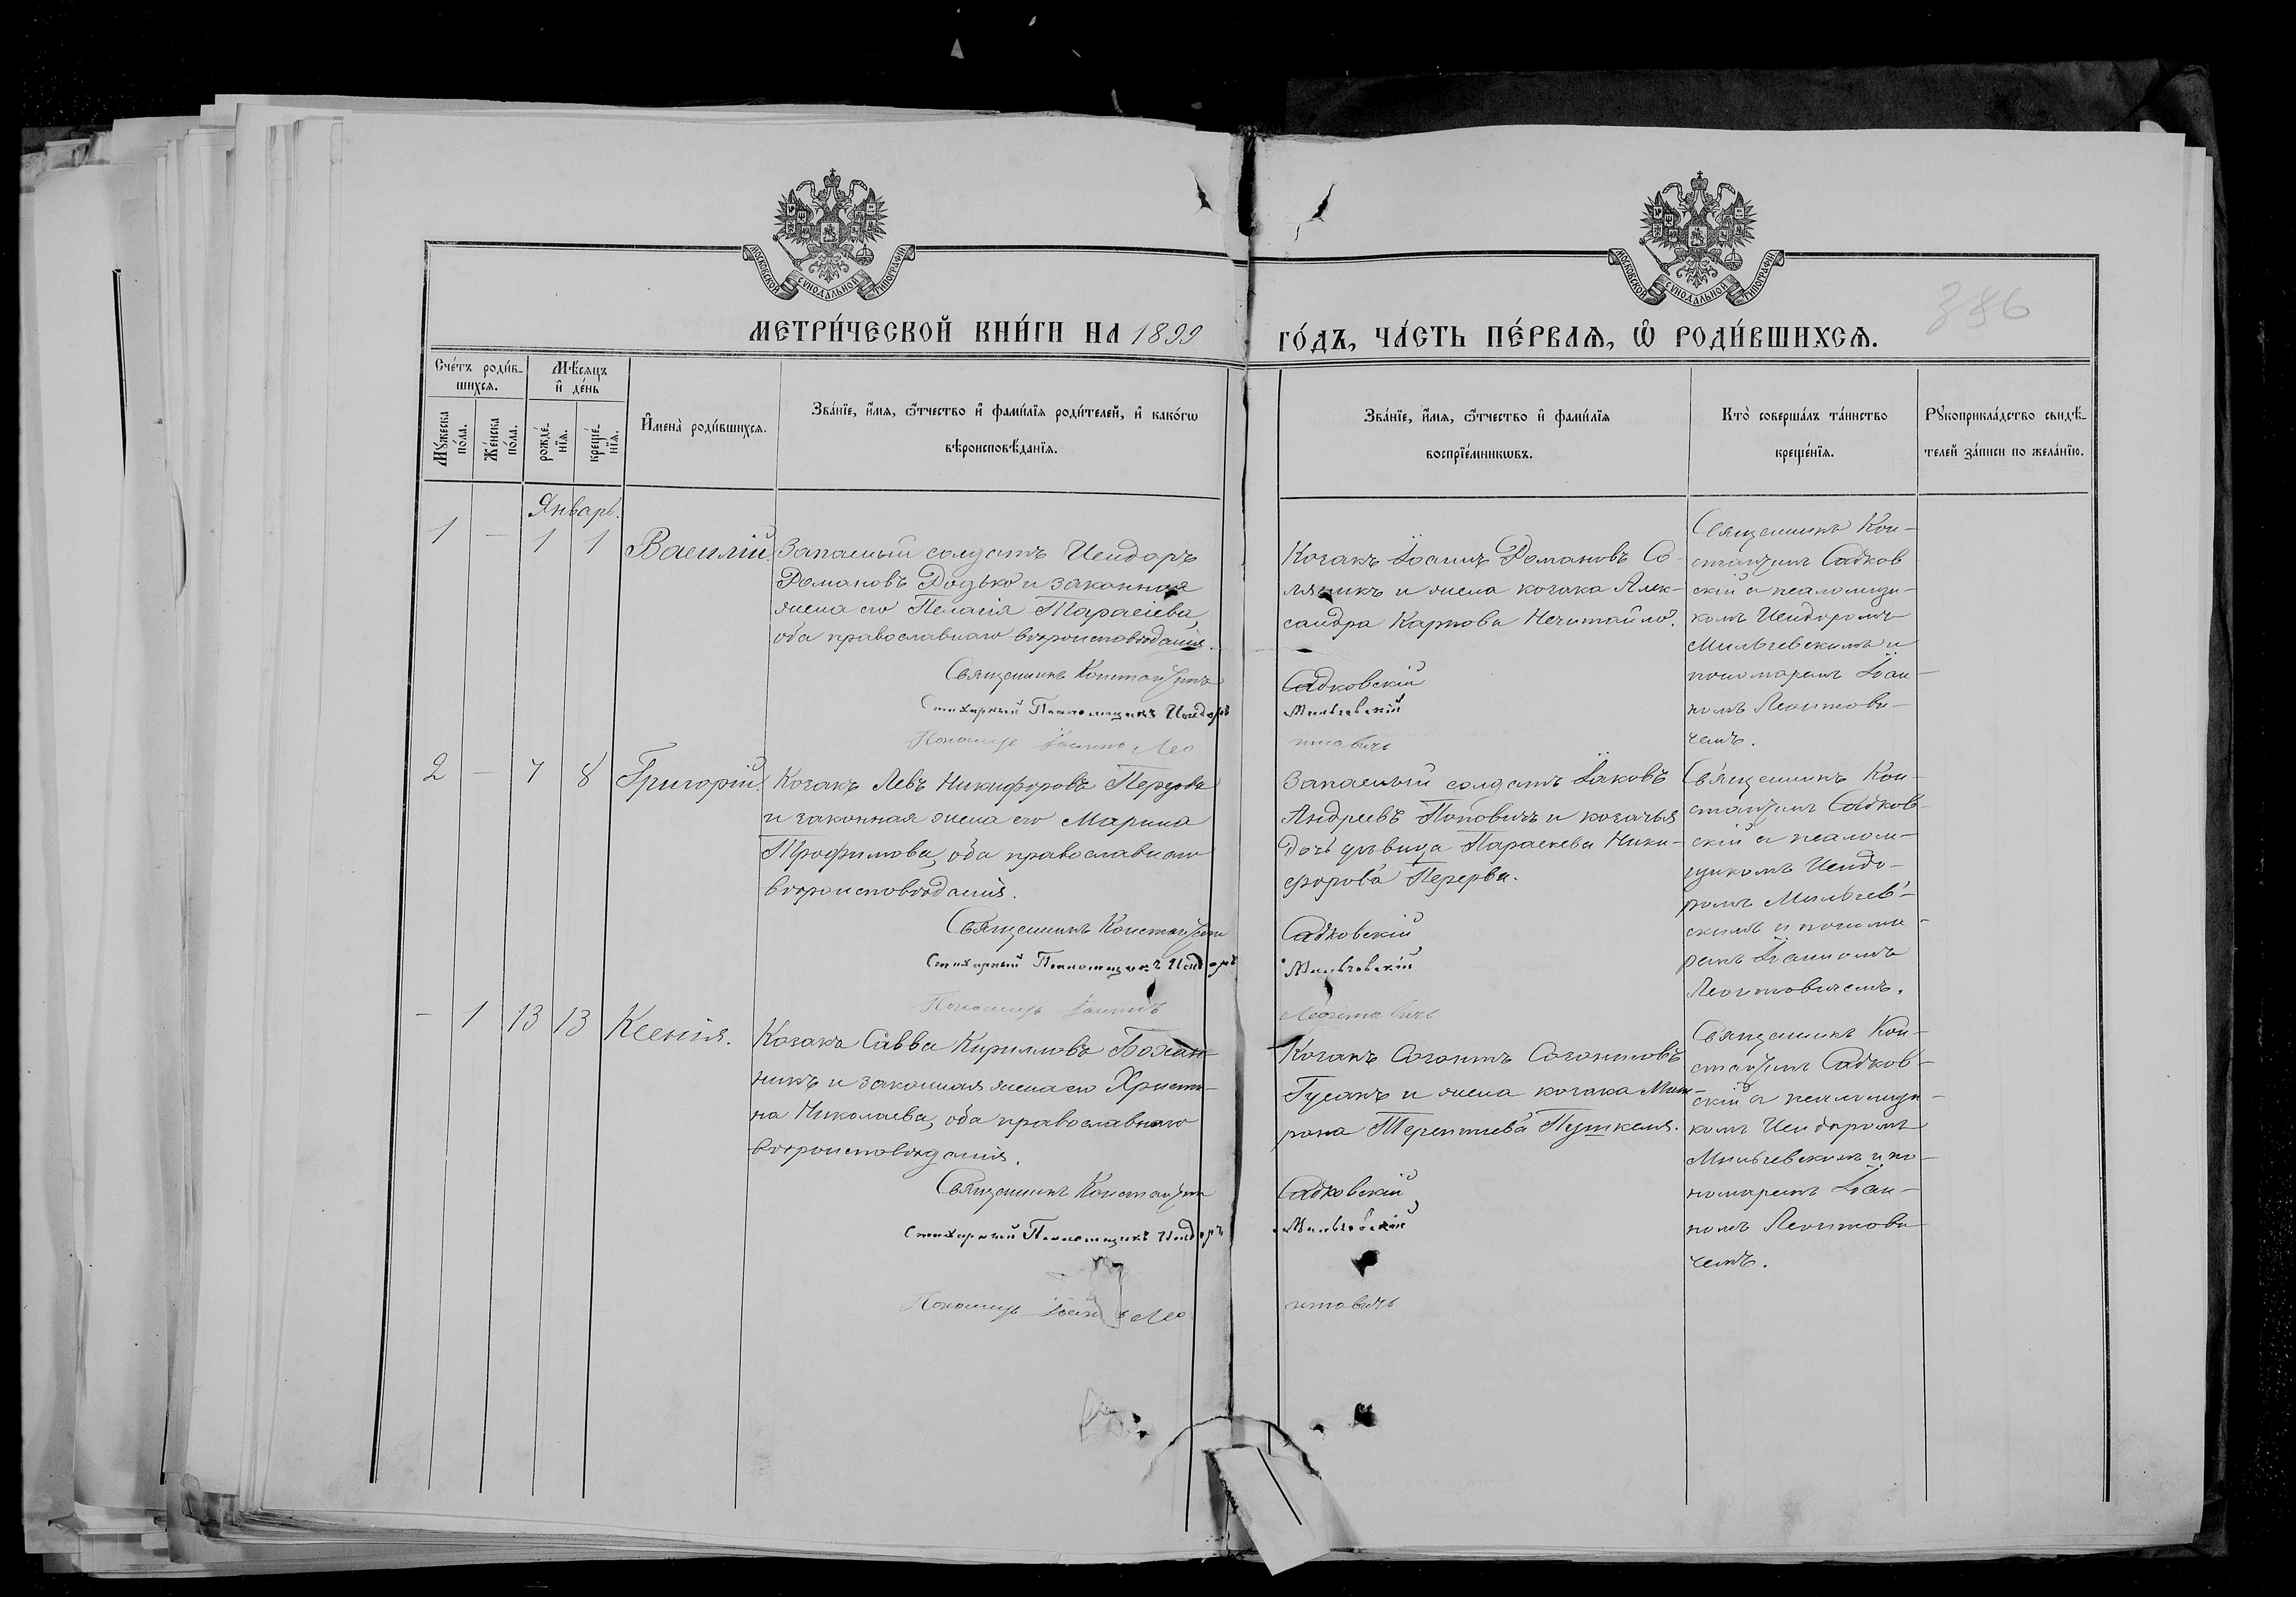 МОСКОВСКОЙ СѴНОДАЛЬНОЙ ТИПОГРАФІИ
МОСКОВСКОЙ СѴНОДАЛЬНОЙ ТИПОГРАФІИ
386
МЕТРИ́ЧЕСКОЙ КНИ́ГИ НА 1899
ГО́ДЪ, ЧА́СТЬ ПЕ́РВАѦ, Ѡ РОДИ́ВШИХСѦ.
Сче́тъ роди́в-
шихсѧ.
Мѣ́сѧцъ
и҆ де́нь
Мꙋ́жеска
по́ла.
Же́нска
по́ла.
рожде́-
нїѧ.
креще́-
нїѧ.
И҆мена̀ роди́вшихсѧ.
Зва́нїе, и҆́мѧ, ѻ҆́тчество и҆ фами́лїѧ роди́телей, и҆ како́гѡ
вѣроисповѣ́данїѧ.
Зва́нїе, и҆́мѧ, ѻ҆́тчество и҆ фами́лїѧ
воспрїе́мникѡвъ.
Кто̀ соверша́лъ та́инство
креще́нїѧ.
Рꙋкоприкла́дство свидѣ́-
телей за́писи по жела́нїю.
Январь.
1 — 1 1 Василій.
Запасный солдатъ Исидоръ
Романовъ Родько и законная
жена его Пелагія Тарасіева,
оба православнаго вѣроисповѣданія.
Священникъ Константинъ Садковскій
Стихарный Псаломщикъ Исидоръ Мильчевскій
Пономарь Іоаннъ Леонтовичъ
Козакъ Іоаннъ Романовъ Со-
ляникъ и жена козака Алек-
сандра Карпова Нечитайло.
Священникъ Кон-
стантинъ Садков
скій с псаломщи-
комъ Исидоромъ
Мильчевскимъ и
пономаремъ Іоан-
номъ Леонтови-
чемъ.
2 — 7 8 Григорій.
Козакъ Левъ Никифоровъ Перерва
и законная жена его Марина
Трофимова, оба православнаго
вѣроисповѣданія.
Священникъ Константинъ Садковскій
Стихарный Псаломщикъ Исидоръ Мильчевскій
Пономарь Іоаннъ Леонтовичъ
Запасный солдатъ Іаковъ
Андреевъ Поповичъ и козачья
дочь дѣвица Параскева Ники-
форова Перерва.
Священникъ Кон-
стантинъ Садков-
скій с псалом-
щикомъ Исидо-
ромъ Мильчев-
скимъ и понома-
ремъ Іоанномъ
Леонтовичемъ.
— 1 13 13 Ксенія.
Козакъ Савва Кирилловъ Бохан-
никъ и законная жена его Христи-
на Николаева, оба православнаго
вѣроисповѣданія.
Священникъ Константинъ Садковскій
Стихарный Псаломщикъ Исидоръ Мильчевскій
Пономарь Іоаннъ Леонтовичъ
Козакъ Созонтъ Созонтовъ
Гусакъ и жена козака
Терентиева
Священникъ Кон-
стантинъ Садков-
скій с псаломщи-
комъ Исидоромъ
Мильчевскимъ и по-
номаремъ Іоан-
номъ Леонтови
чемъ.